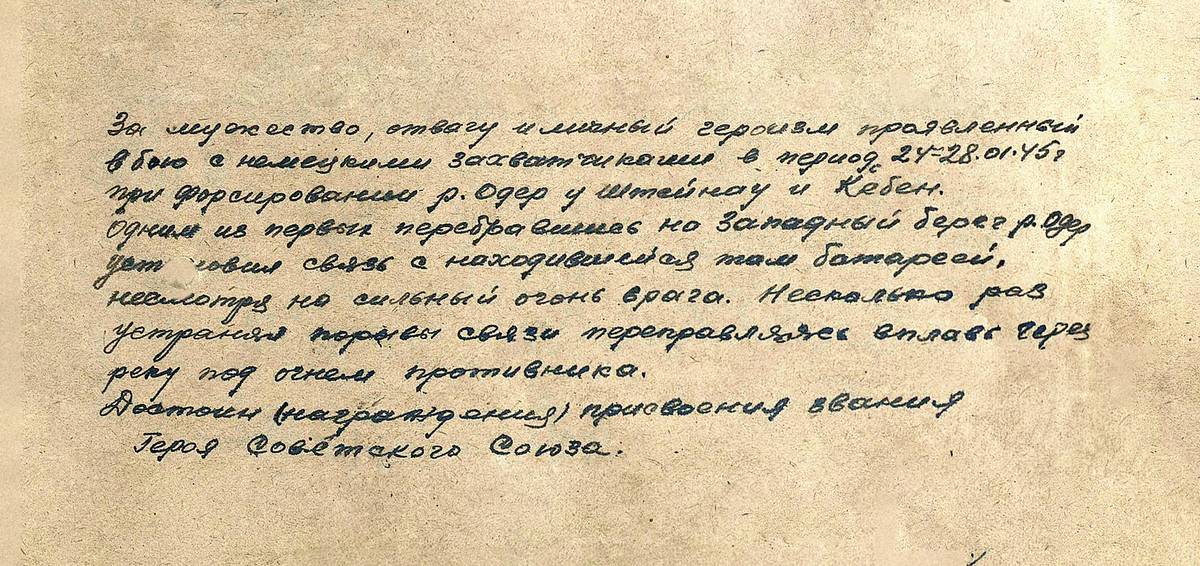 За мужество, отвагу и личный героизм проявленный
в бою с немецкими захватчиками в период с 24-28.01.45г
при форсировании р. Одер у Штейнау и Кебен.
Одним из первых перебравшись на Западный берег р. Одер
связь с находившейся там батареей,
несмотря на сильный огонь врага. Несколько раз
устранял порывы связи переправляясь вплавь через
реку под огнем противника.
Достоин (награждения) присвоения звания
Героя Советского Союза.